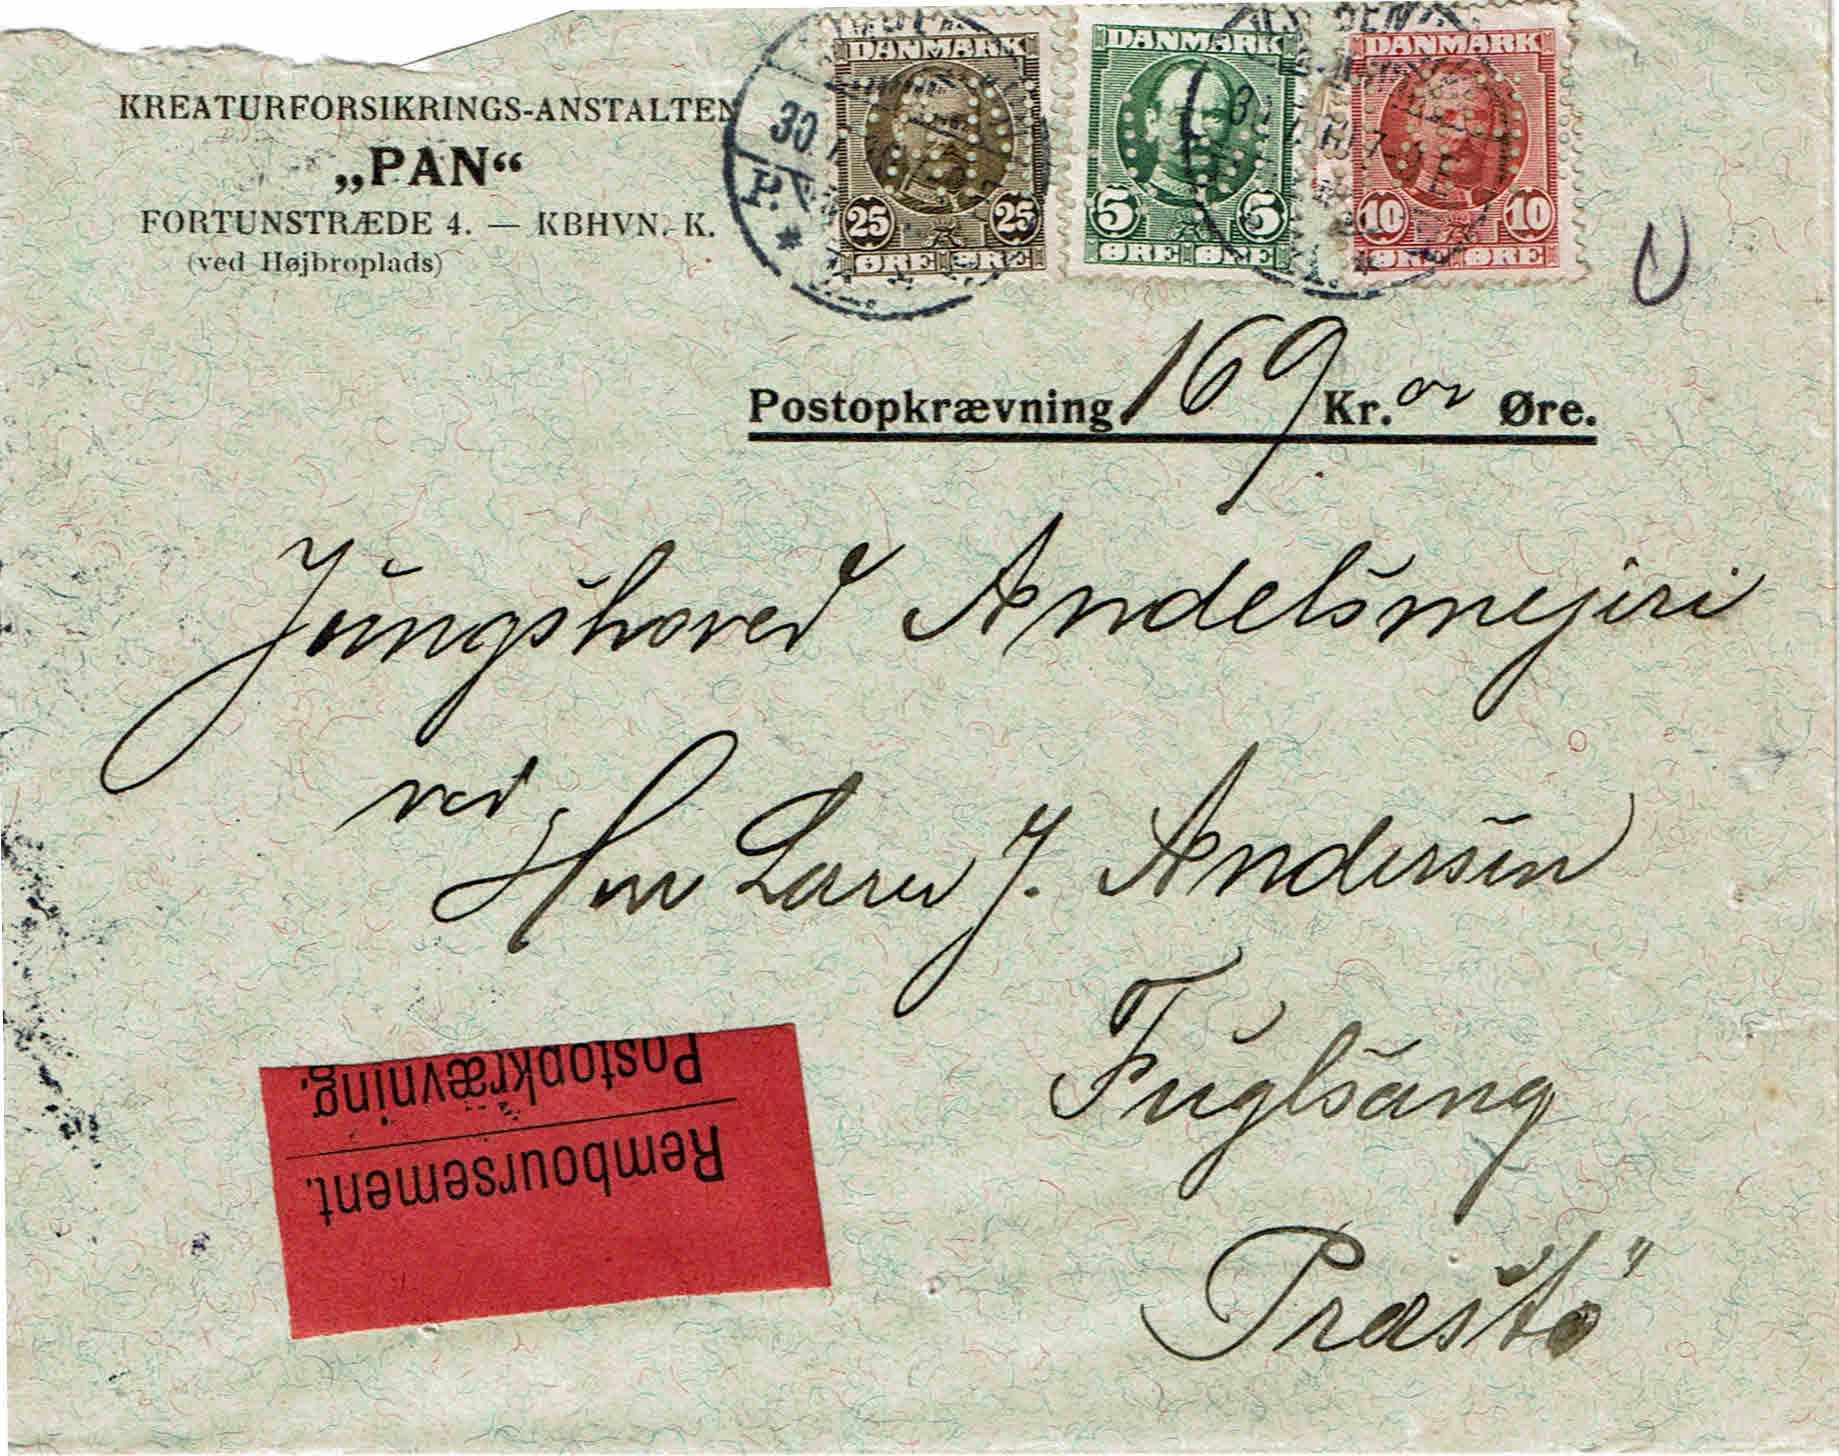 KREATURFORSIKRINGS-ANSTALTEN
„PAN“
FORTUNSTRÆDE 4. — KBHVN. K.
(ved Højbroplads)
DANMARK
25 25
ØRE ØRE
DANMARK
5 5
ØRE ØRE
DANMARK
10 10
ØRE ØRE
30
Postopkrævning 169 Kr. Øre.
Jungshoved Andelsmejeri
ved
Herr Lars J. Andersen
Fuglsang
Præstö
Postopkrævning.
Remboursement.